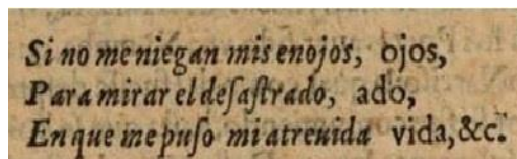 Si no me niegan mis enojos, ojos,
Para mirar el deſaſtrado, ado,
En que me puſo mi atreuida vida, &c.